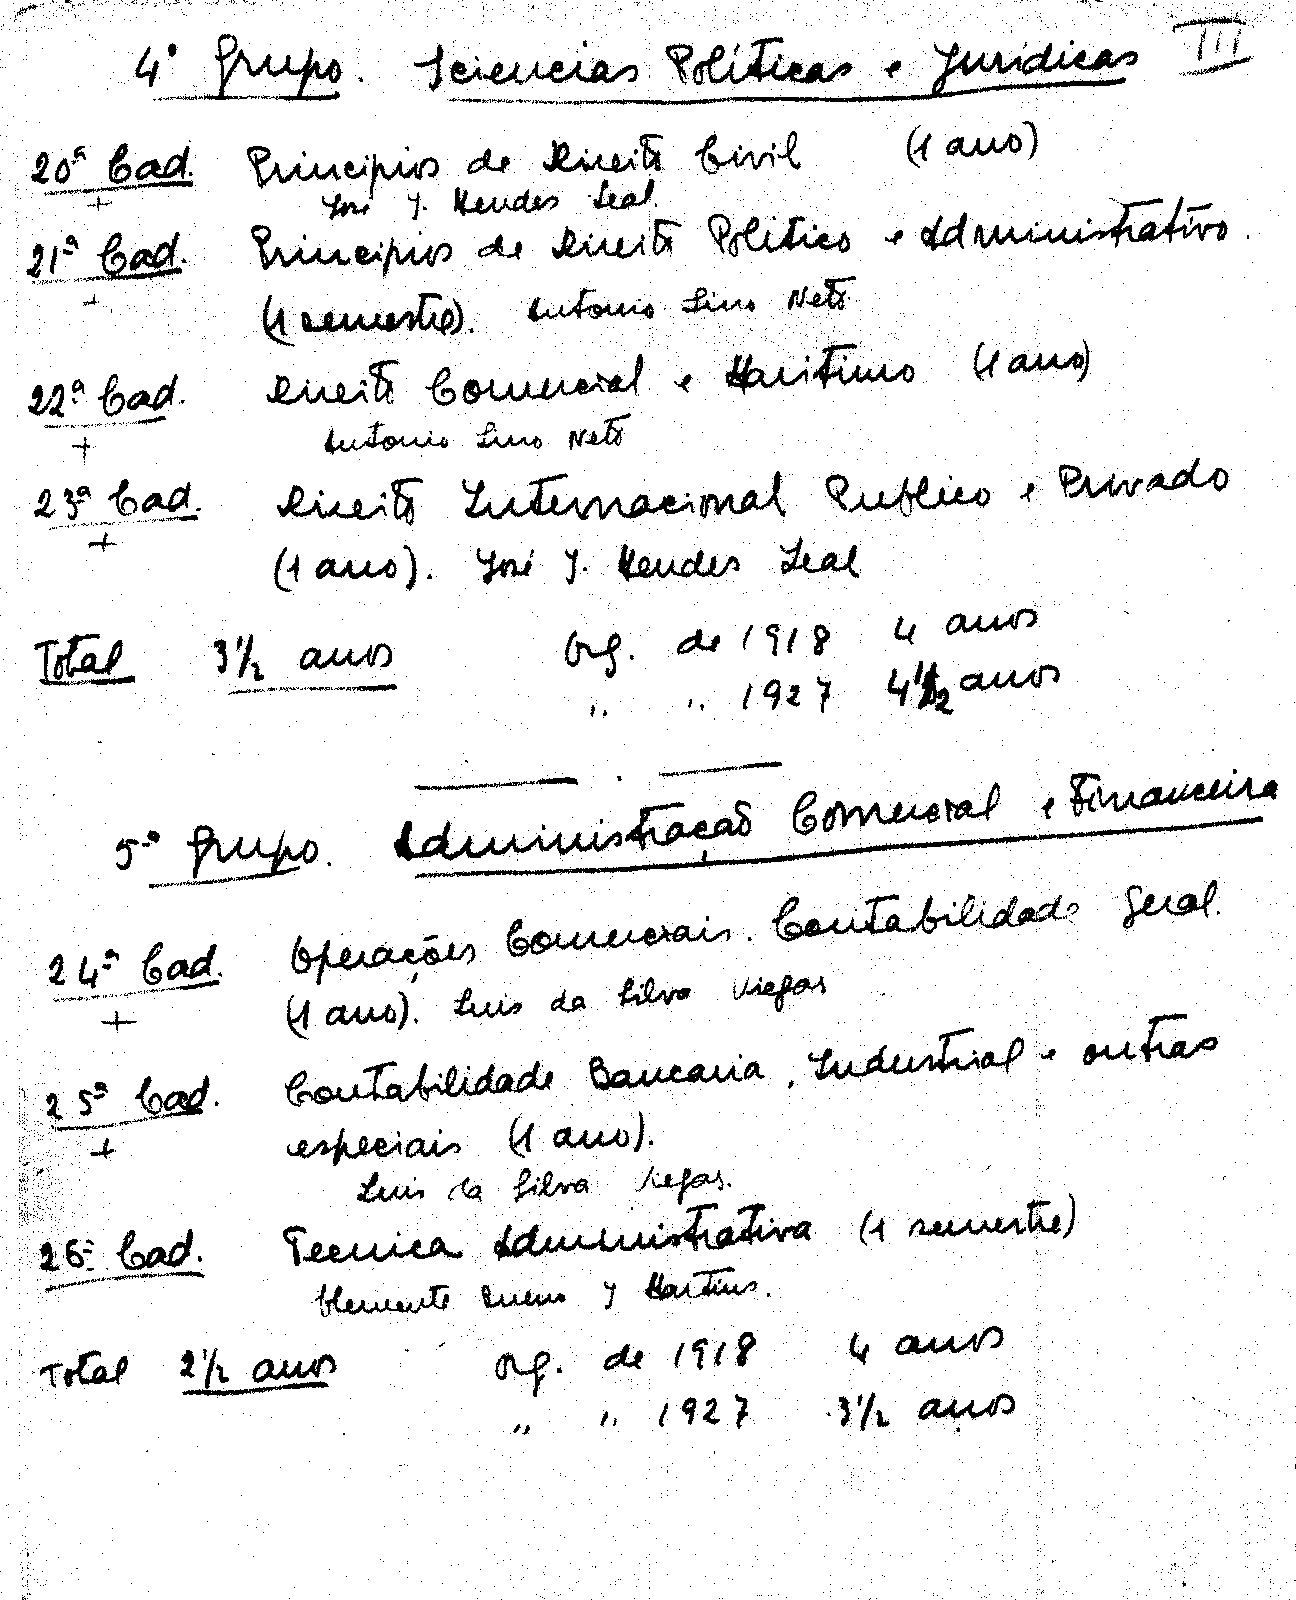 III
4º Grupo. Sciencias Políticas e Jurídicas
20ª Cad. Principios de Direito Civil (1 ano)
José J. Mendes Leal.
21ª Cad. Principios de Direito Politico e Administrativo.
(1 semestre). Antonio Lino Neto
22ª Cad. Direito Comercial e Maritimo (1 ano)
Antonio Lino Neto
23ª Cad. Direito Internacional Publico e Privado
(1 ano). José J. Mendes Leal
Total 3 1/2 anos Org. de 1918 4 anos
" " 1927 4 1/2 anos
5º Grupo. Administração Comercial e Financeira
24ª Cad. Operações Comerciais. Contabilidade Geral.
(1 ano). Luis da Silva Viegas
25ª Cad. Contabilidade Bancaria, Industrial e outras
especiais (1 ano).
Luis da Silva Viegas.
26ª Cad. Tecnica Administrativa (1 semestre)
Clemente J Martins.
Total 2 1/2 anos Org. de 1918 4 anos
" " 1927 3 1/2 anos